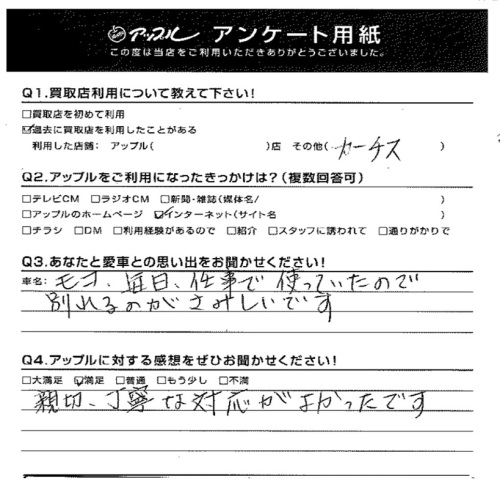 アップル アンケート用紙
この度は当店をご利用いただきありがとうございました。
Q1.買取店利用について教えて下さい!
□買取店を初めて利用
☑過去に買取店を利用したことがある
利用した店舗: アップル( )店 その他( カーチス )
Q2.アップルをご利用になったきっかけは?(複数回答可)
□テレビCM □ラジオCM □新聞・雑誌(媒体名/ )
□アップルのホームページ ☑インターネット(サイト名 )
□チラシ □DM □利用経験があるので □紹介 □スタッフに誘われて □通りがかりで
Q3.あなたと愛車との思い出をお聞かせください!
車名: モコ、毎日、仕事で使っていたので
別れるのがさみしいです
Q4.アップルに対する感想をぜひお聞かせください!
□大満足 ☑満足 □普通 □もう少し □不満
親切、丁寧な対応がよかったです